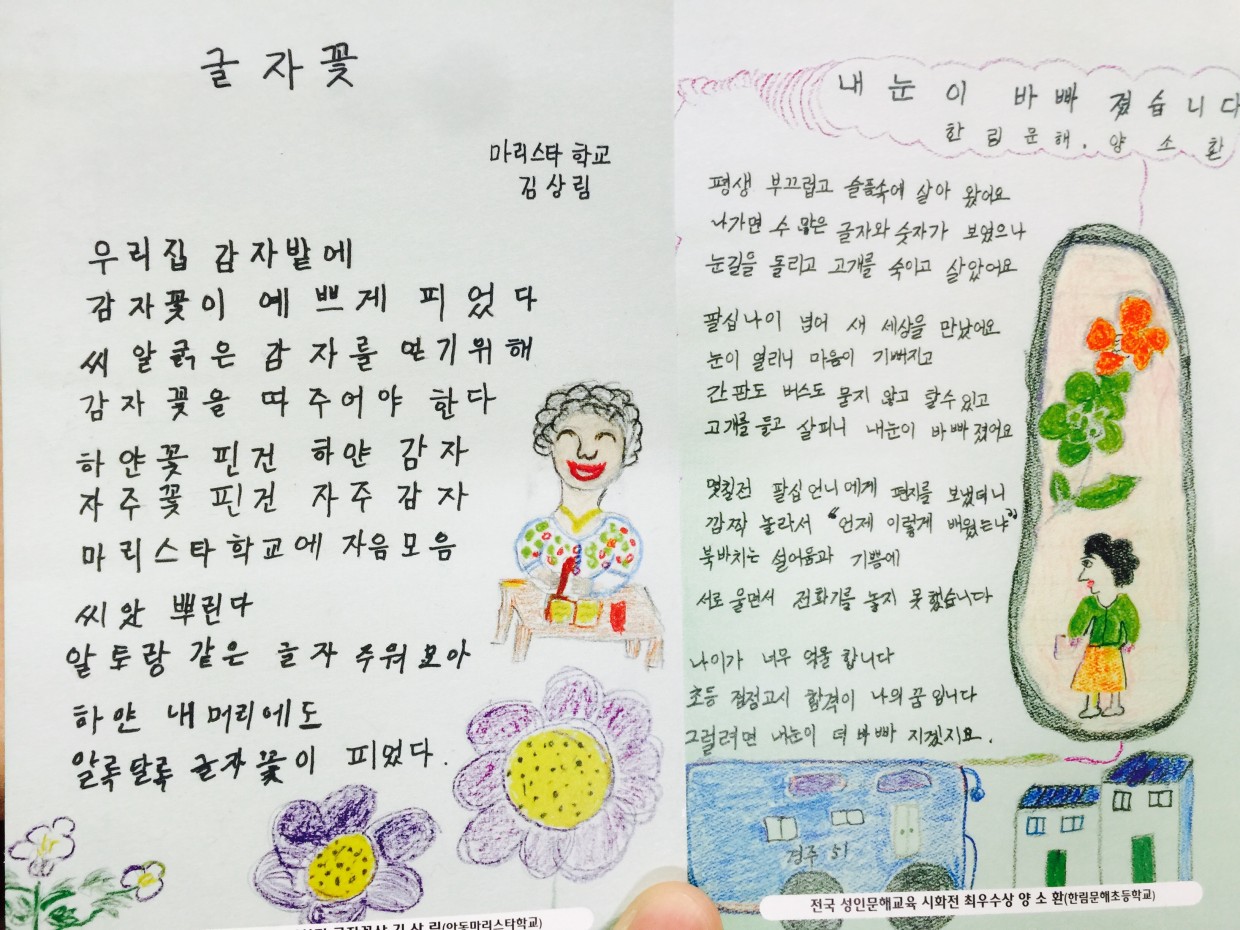 글자꽃
마리스타 학교
김상림
우리집 감자밭에
감자꽃이 예쁘게 피었다
씨알굵은 감자를 얻기위해
감자꽃을 따주어야 한다
하얀꽃 핀건 하얀 감자
자주꽃 핀건 자주감자
마리스타학교에 자음모음
씨앗 뿌린다
알토랑 같은 글자 주워모아
하얀 내머리에도
알록달록 글자꽃이 피었다.
김상림(안동마리스타학교)
내 눈이 바빠졌습니다
한림문해. 양소환
평생 부끄럽고 슬픔속에 살아 왔어요
나가면 수 많은 글자와 숫자가 보였으나
눈길을 돌리고 고개를 숙이고 살았어요
팔십나이 넘어 새 세상을 만났어요
눈이 열리니 마음이 기뻐지고
간판도 버스도 묻지 않고 탈수있고
고개를 들고 살피니 내눈이 바빠졌어요
몇칠전 팔십언니에게 편지를 보냈더니
깜짝 놀라서 "언제 이렇게 배웠는냐"
북바치는 설어움과 기쁨에
서로 울면서 전화기를 놓지 못했습니다
나이가 너무 억울 합니다
초등 검정고시 합격이 나의 꿈입니다
그럴려면 내눈이 더 바빠 지겠지요.
경주 51
전국 성인문해교육 시화전 최우수상 양소환(한림문해초등학교)